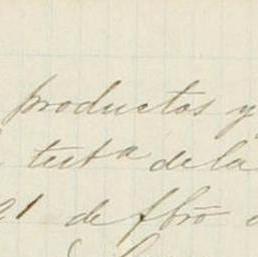 productos y
testa de la
21 de fbro